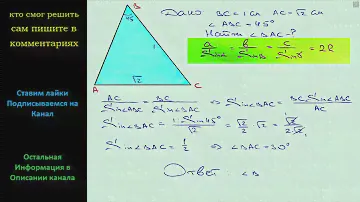 кто смог решить
сам пишите в
комментариях
Ставим лайки
Подписываемся на
Канал
Остальная
Информация в
Описании канала
B
45°
1
A
√2
C
Дано BC = 1 см AC = √2 см
∠ABC = 45°
Найти ∠BAC - ?
a/Sinα = b/Sinβ = c/Sinγ = 2R
AC/Sin∠ABC = BC/Sin∠BAC Sin∠BAC = BC Sin∠ABC/AC
Sin∠BAC = 1·Sin45°/√2 = √2/2·√2 =
Sin∠BAC = 1/2 ⇒ ∠BAC = 30°
Ответ ∠B